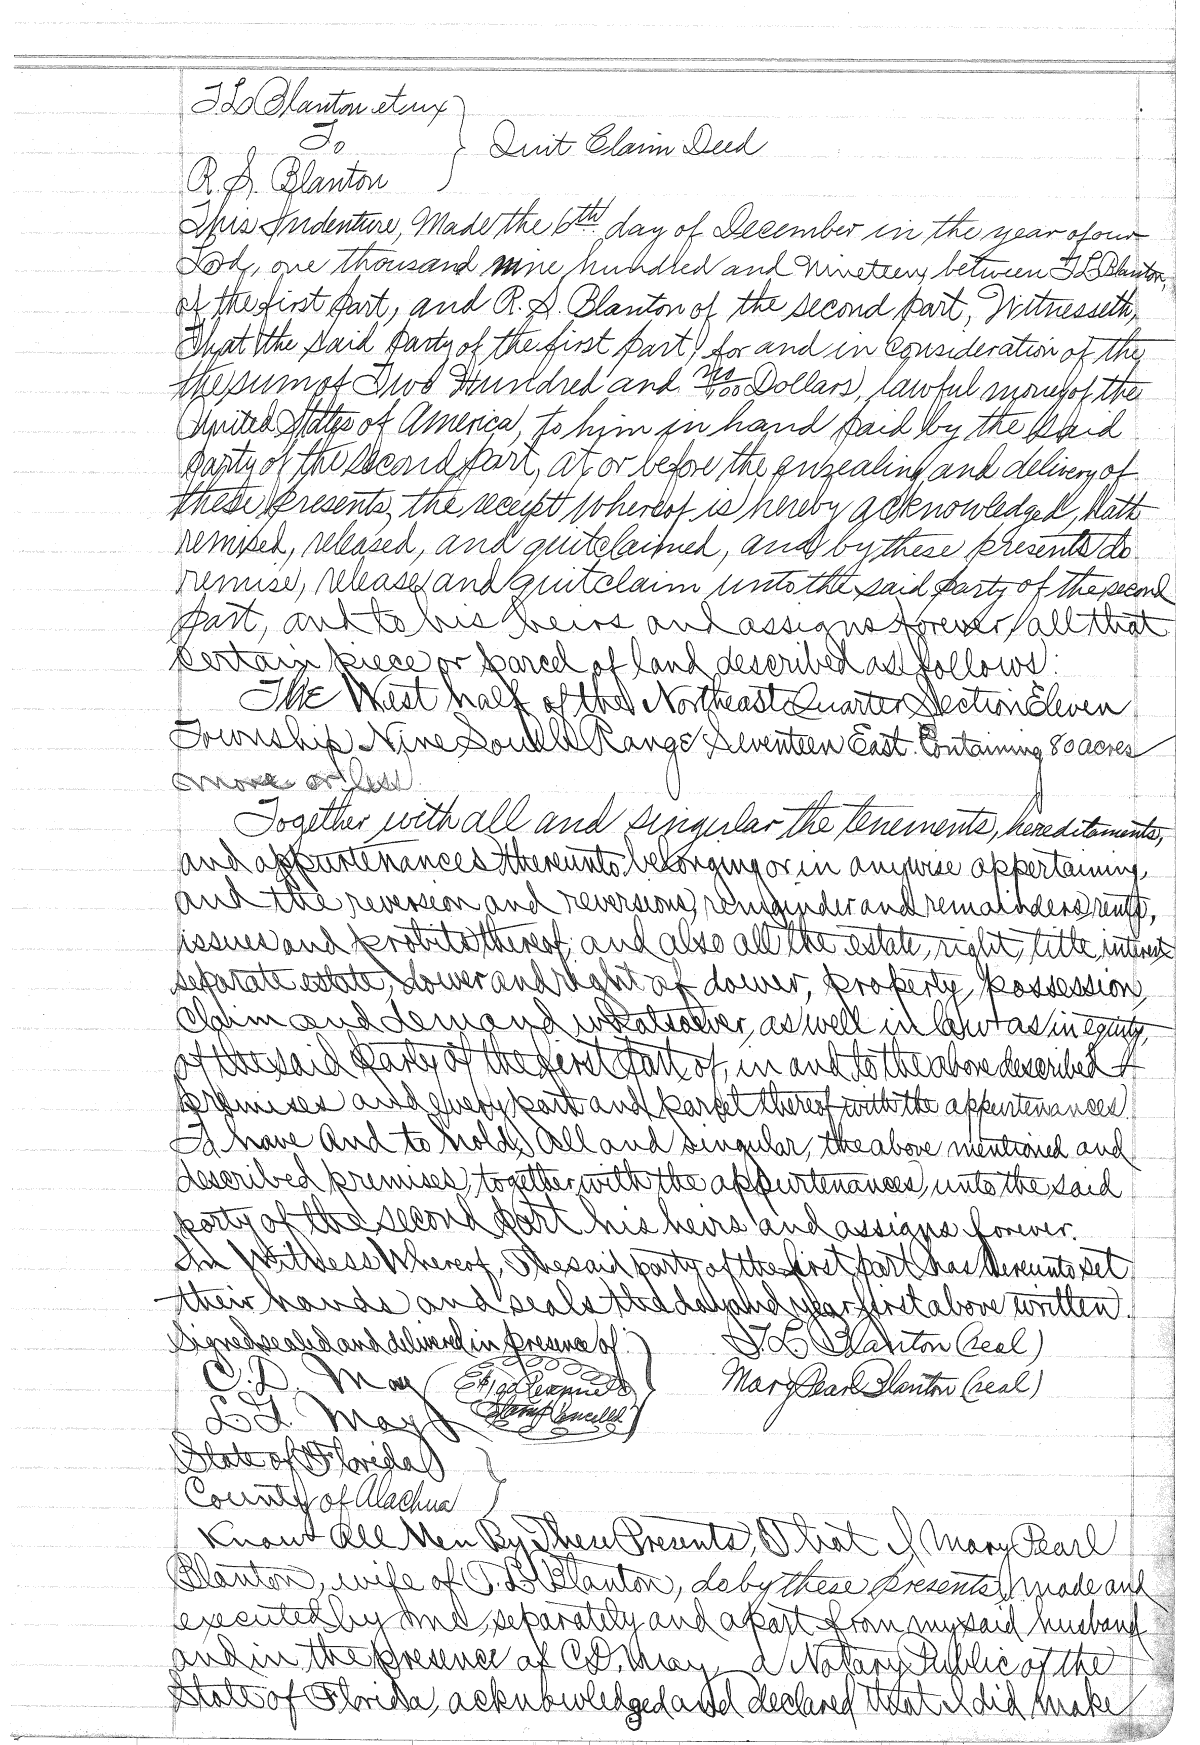 T. L. Blanton et ux
To
Quit Claim Deed
R. S. Blanton
This Indenture, Made the 6th day of December in the year of our
Lord, one thousand nine hundred and nineteen, between T L Blanton,
of the first part, and R. S. Blanton of the second part, Witnesseth,
That the said party of the first part, for and in consideration of the
the sum of Two Hundred and no/100 Dollars, lawful money of the
United States of America, to him in hand paid by the said
party of the second part, at or before the enzealing and delivery of
these presents, the receipt whereof is hereby acknowledged, hath
remised, released, and quitclaimed, and by these presents do
remise, release and quitclaim unto the said party of the second
part, and to his heirs and assigns forever, all that
certain piece or parcel of land described as follows:
The West half of the Northeast Quarter Section Eleven
Township Nine South Range Seventeen East. Containing 80 acres
more or less.
Together with all and singular the tenements, hereditaments,
and appurtenances thereunto belonging or in anywise appertaining,
and the reversion and reversions, remainder and remainders, rents,
issues and profits thereof, and also all the estate, right, title, interest
separate estate, dower and right of dower, property, possession,
claim and demand whatsoever, as well in law as in equity,
of the said party of the first part of, in and to the above described
premises and every part and parcel thereof with the appurtenances.
To have and to hold, all and singular, the above mentioned and
described premises, together with the appurtenances, unto the said
party of the second part his heirs and assigns forever.
In Witness Whereof, The said party of the first part has hereunto set
their hands and seals the day and year first above written.
Signed sealed and delivered in presence of: T. L. Blanton (seal)
C. D. May Mary Pearl Blanton (seal)
Revenue
Stamp Cancelled
L. T. May
State of Florida
County of Alachua
Know All Men By These Presents, That I Mary Pearl
Blanton, wife of T. L. Blanton, do by these presents, made and
executed by me, separately and apart from my said husband
and in the presence of C. D. May, a Notary Public of the
State of Florida, acknowledged and declared that I did make